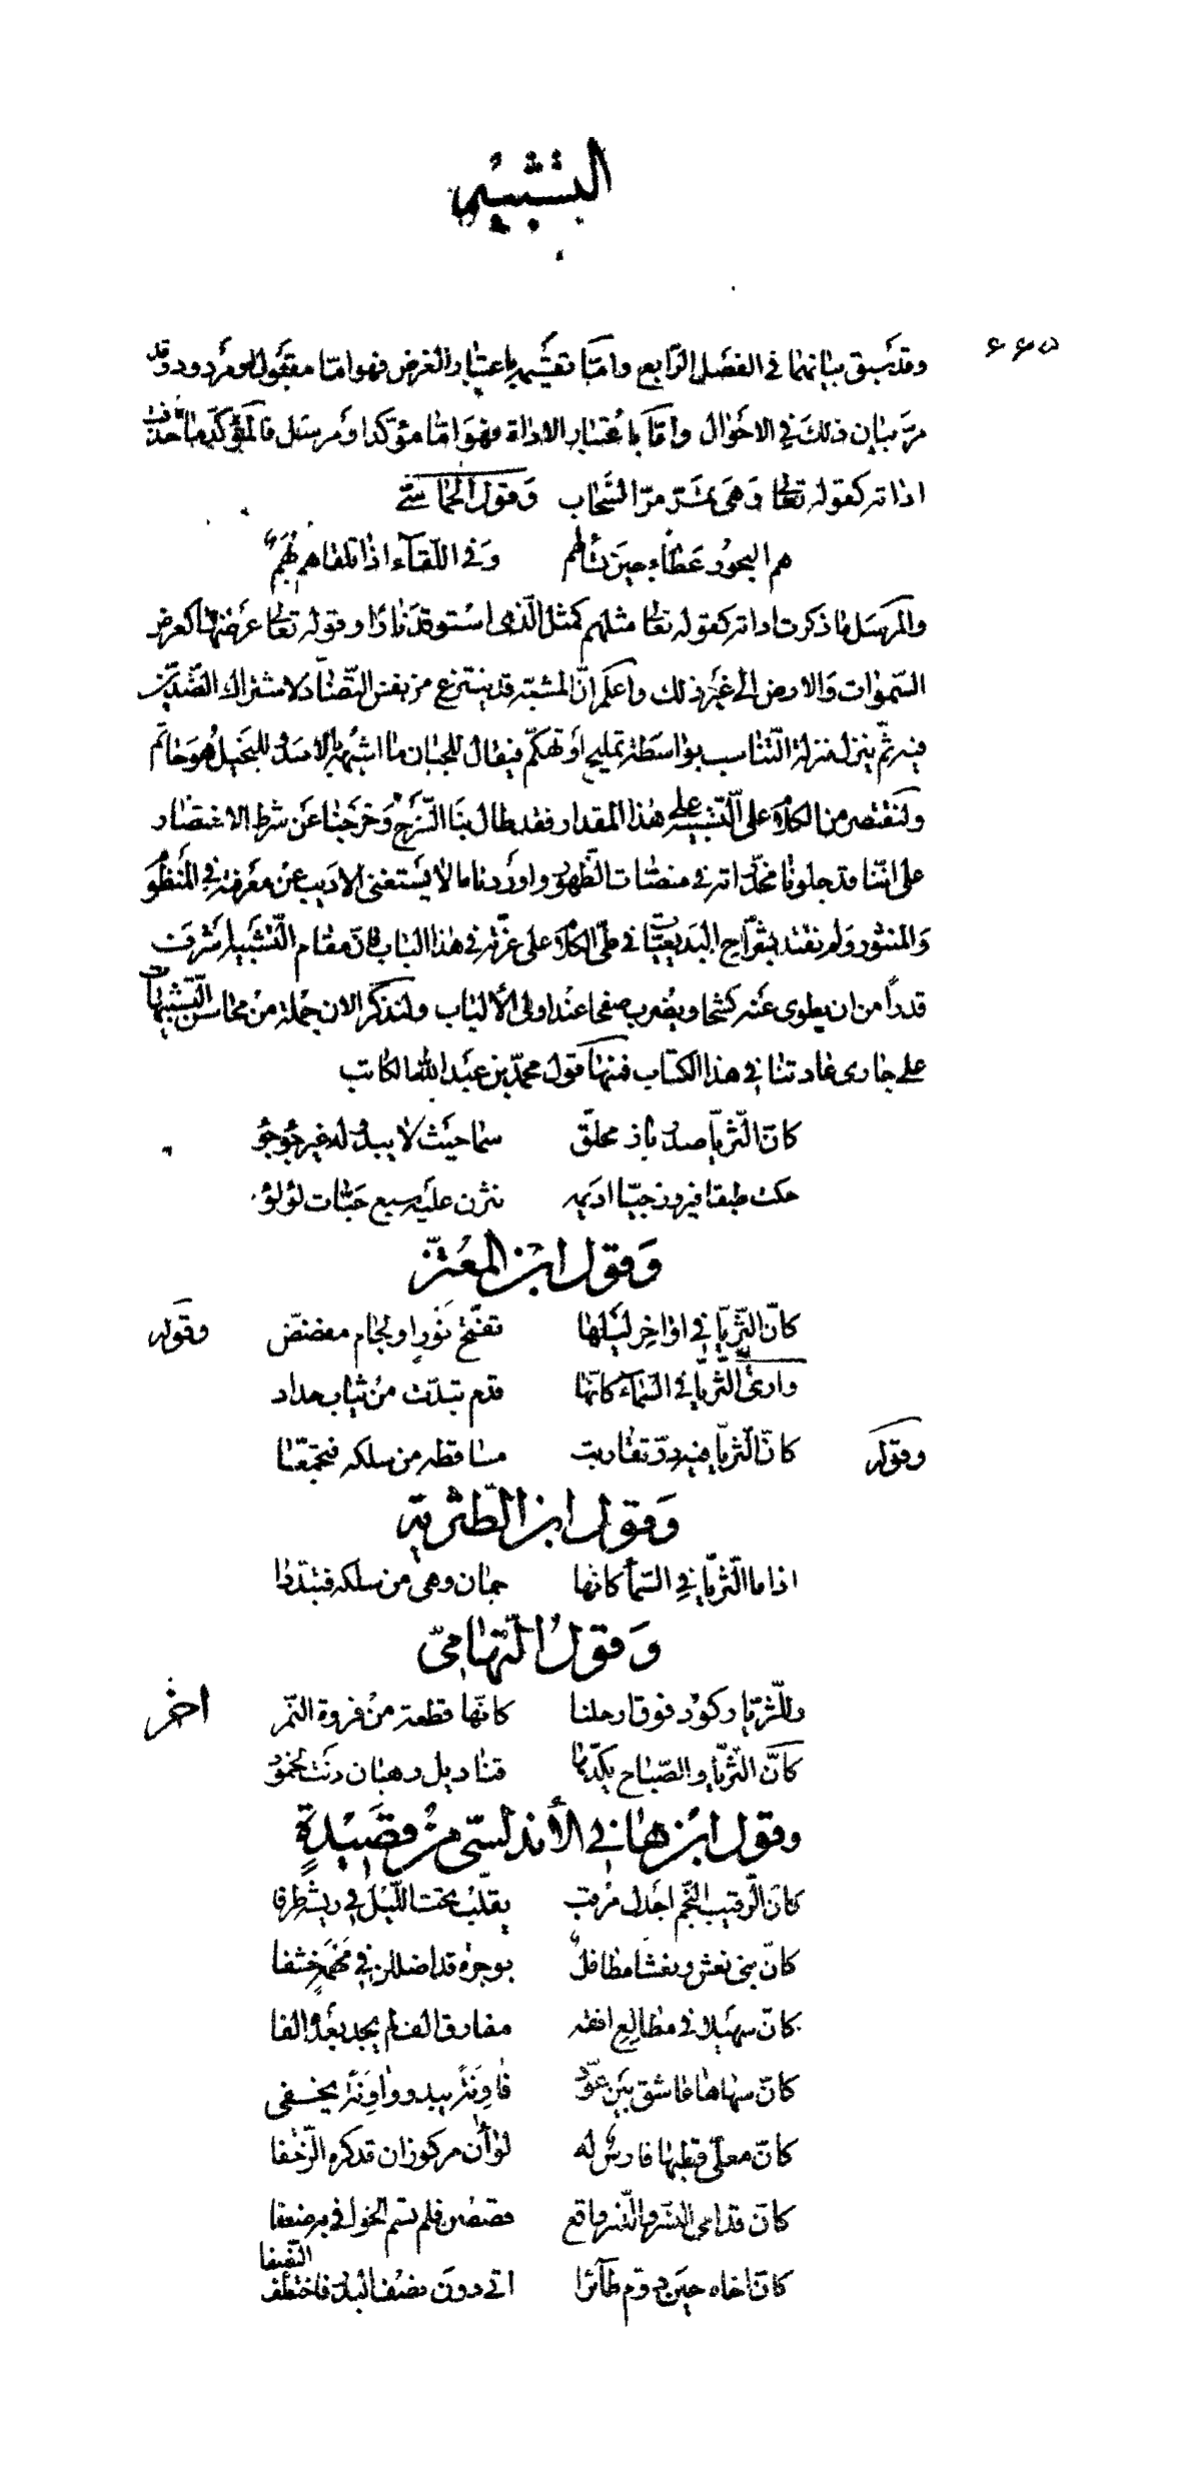 التشبيه
٦٦٥
وقد سبق بيانهما في الفصل الرابع واما تقسيمه باعتبار الغرض فهو اما مقبول او مردود وقد
مر بيان ذلك في الاحوال واما باعتبار الاداة فهو اما مؤكد او مرسل فالمؤكد ما حذفت
اداته كقوله تعالى وهي تمر مر السحاب وقول الحماسي
هم البحور عطاء حين تسألهم وفي اللقاء اذا تلقاهم بهم
والمرسل ما ذكرت اداته كقوله تعالى مثلهم كمثل الذي استوقد نارا وقوله تعالى عرضها كعرض
السموات والارض الى غير ذلك واعلم ان المشبه قد ينتزع من نفس التضاد لاشتراك الضدين
فيه ثم ينزل منزلة التناسب بواسطة تمليح او تهكم فيقال للجبان ما اشبهه بالاسد وللبخيل هو حاتم
ولنقتصر من الكلام على التشبيه على هذا المقدار فقد طال بنا الشرح وخرجنا عن شرط الاختصار
على اننا قد جلونا مخدراته في منصات الظهور واوردنا ما لا يستغني الاديب عن معرفته في المنظوم
والمنثور ولم نقتد بشراح البديعيات في طي الكلام على غره في هذا الباب فان مقام التشبيه اشرف
قدرا من ان يطوى عنه كشحا ويضرب صفحا عند اولي الألباب ولنذكر الان جملة من محاسن التشبيهات
على جاري عادتنا في هذا الكتاب فمنها قول محمد بن عبد الله الكاتب
كان الثريا صدر باز محلق سما حيث لا يبدو له غير جؤجؤ
حكت طبقا فيروزجيا اديمه نثرن عليه سبع حبات لؤلؤ
وقول ابن المعتز
كان الثريا في اواخر ليلها تفتح نور او لجام مفضض وقوله
وارى الثريا في السماء كانها قدم تبدت من ثياب حداد
وقوله كان الثريا فيه در تقاربت مساقطه من سلكه فتجمعا
وقول ابن الطثرية
اذا ما الثريا في السما كانها جمان وهى من سلكه فتبددا
وقول التهامي
وللثريا ركود فوق ارحلنا كانها قطعة من فروة النمر اخر
كان الثريا والصباح يكدها قناديل رهبان دنت لخمود
وقول ابن هاني الأندلسي من قصيدة
كان الرقيب النجم اجدل مرقب يقلب تحت الليل في ريشه طرفا
كان بني نعش ونعشا مطافل بوجرة قد اضللن في مهمه خشفا
كان سهيلا في مطالع افقه مفارق الف لم يجد بعده الفا
كان سهاها عاشق بين عود فاونة يبدو واونة يخفى
كان معلى قطبها فارس له لواان مركوزان قد كره الزحفا
كان قدامى النسر والنسر واقع قصصن فلم تسم الخوافي به ضعفا
كان اخاه حين دوم طائرا اتى دون نصف البدر فاختطف النصفا